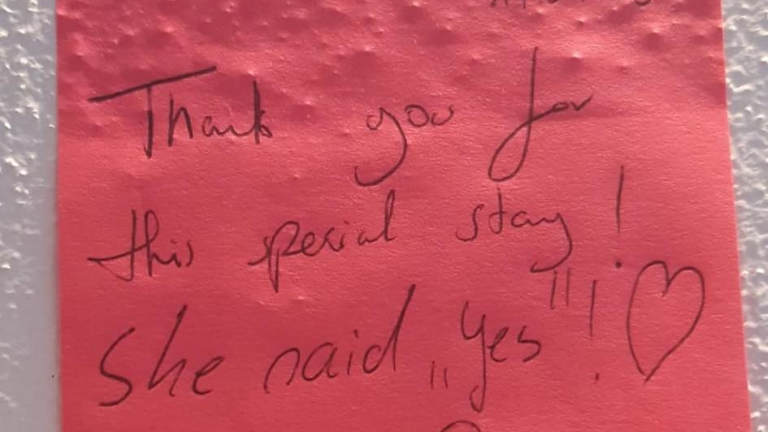 Thank you for
this special stay!
She said „Yes"! ♡